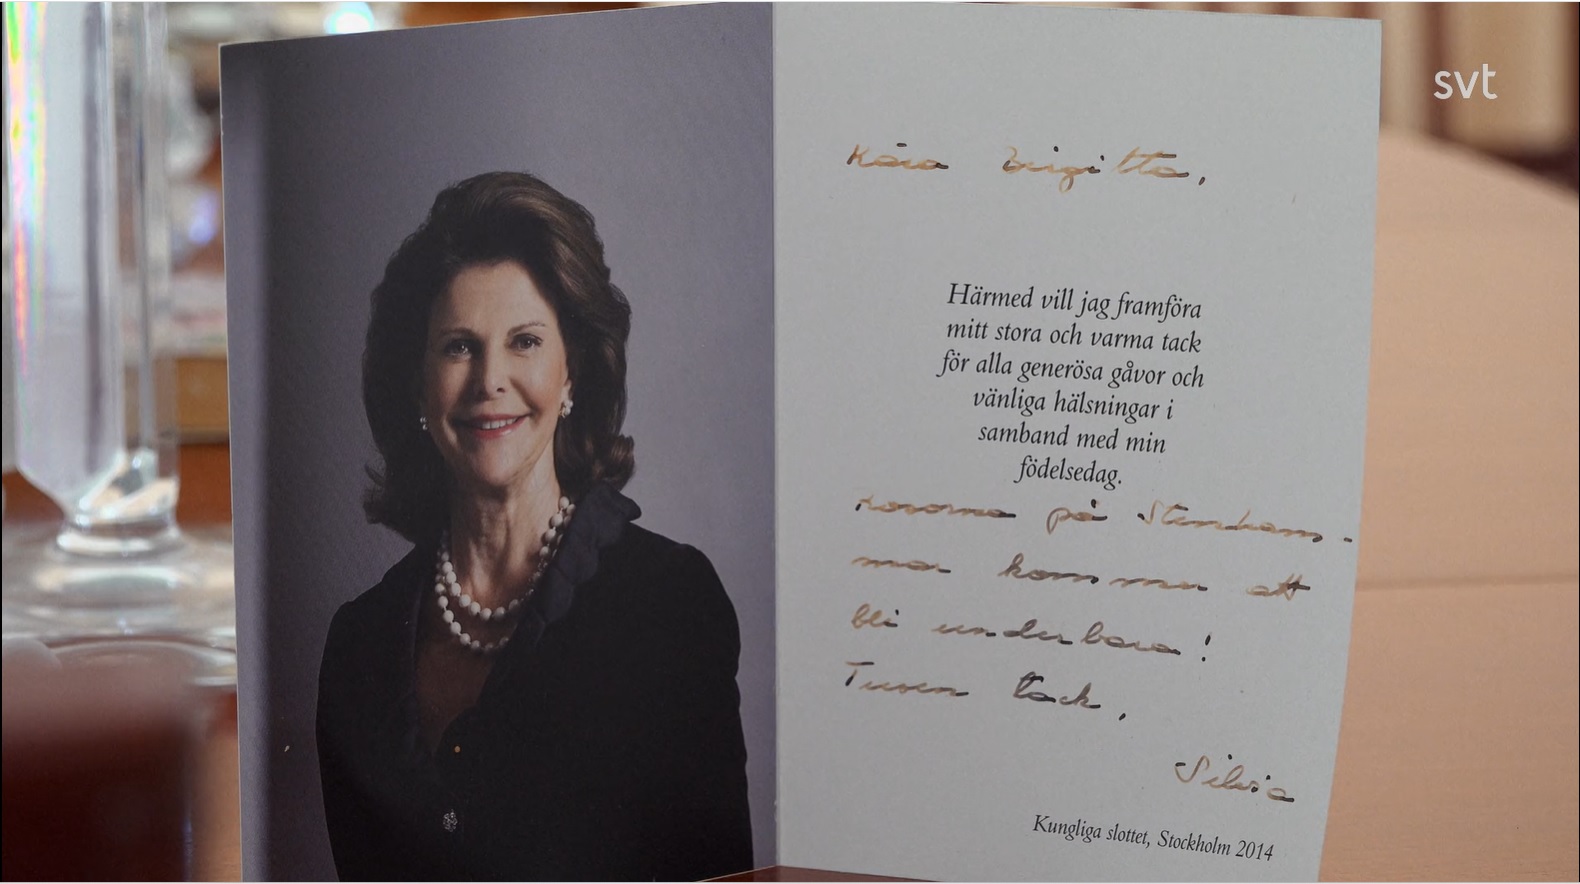 svt
Kära Birgitta,
Härmed vill jag framföra
mitt stora och varma tack
för alla generösa gåvor och
vänliga hälsningar i
samband med min
födelsedag.
Rosorna på Stenham-
mar kommer att
bli underbara!
Tusen tack,
Silvia
Kungliga slottet, Stockholm 2014